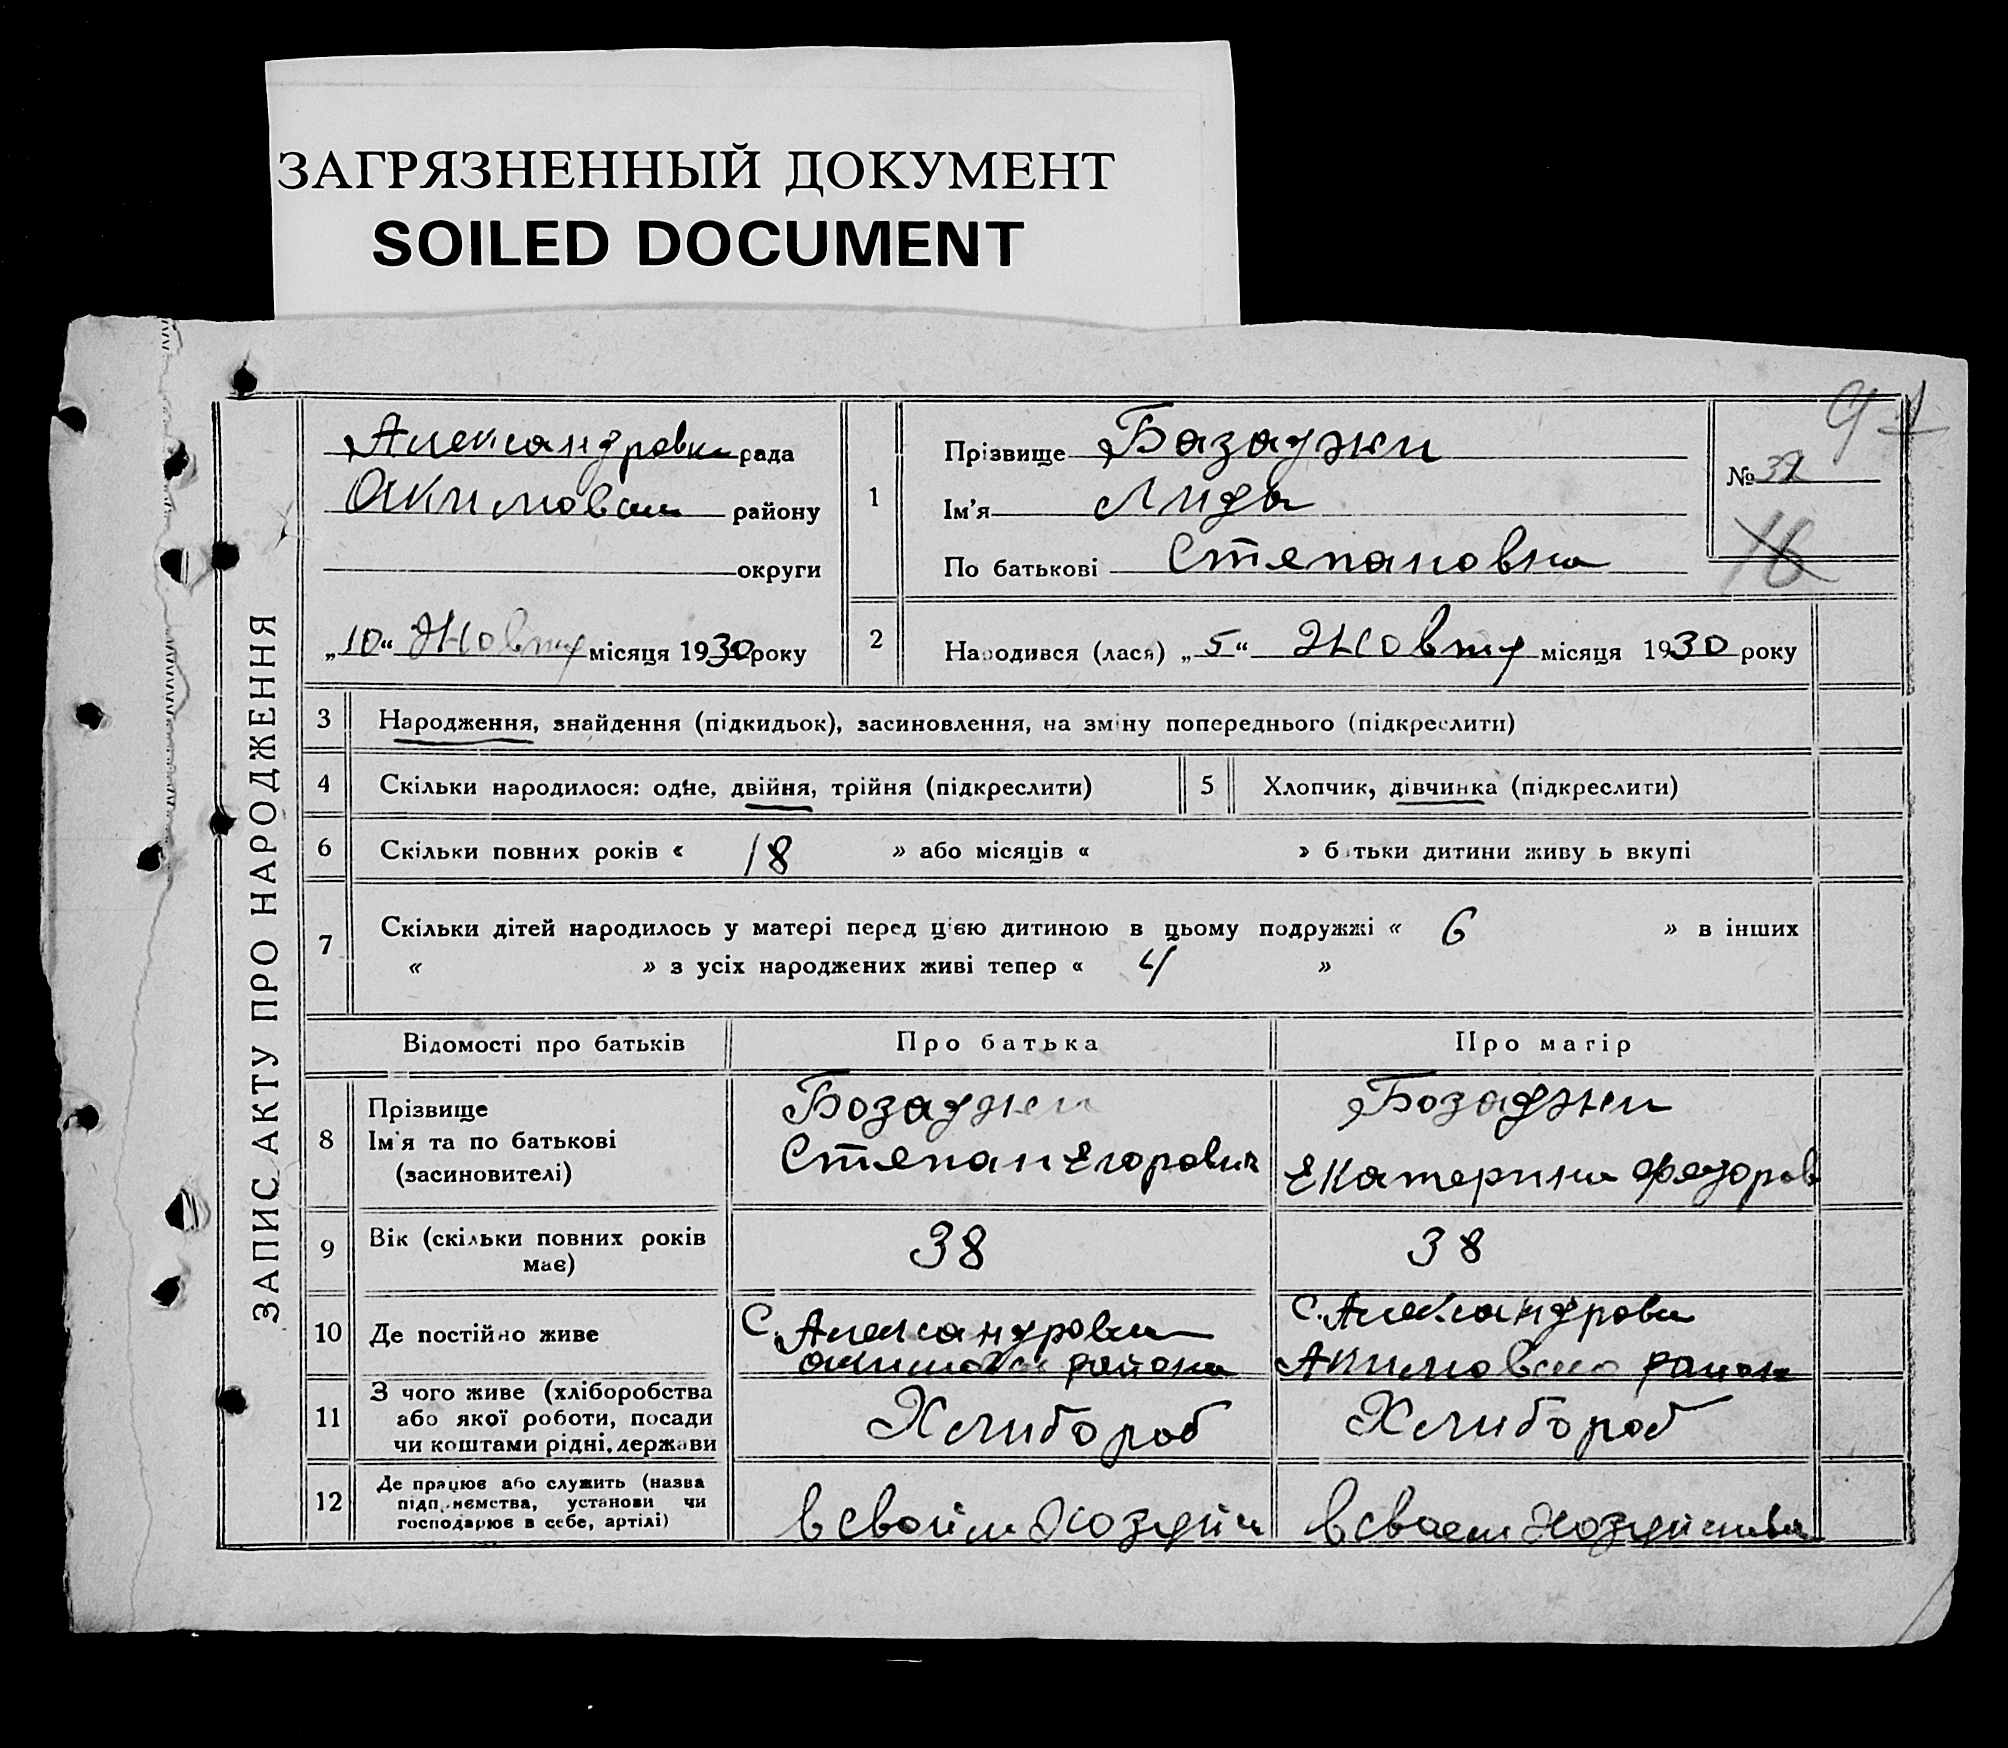 ЗАГРЯЗНЕННЫЙ ДОКУМЕНТ
SOILED DOCUMENT
ЗАПИС АКТУ ПРО НАРОДЖЕННЯ
Александровки рада
району
округи
„10“ Жовту місяця 1930 року
1
Прізвище Базаджи
Ім'я Лида
По батькові Степановна
№ 32
16
2
Народився (лася) „5“ Жовту місяця 1930 року
3 Народження, знайдення (підкидьок), засиновлення, на зміну попереднього (підкреслити)
4 Скільки народилося: одне, двійня, трійня (підкреслити)
5 Хлопчик, дівчинка (підкреслити)
6 Скільки повних років « 18 » або місяців « » батьки дитини живуть вкупі
7 Скільки дітей народилось у матері перед цією дитиною в цьому подружжі « 6 » в інших
« » з усіх народжених живі тепер « 4 »
Відомості про батьків
Про батька
Про матір
8 Прізвище
Ім'я та по батькові
(засиновителі)
Бозаджи
Степан Егорович
Бозаджи
Екатерина Федоров
9 Вік (скільки повних років
має)
38
38
10 Де постійно живе
с. Александровки
района
с. Александровки
Акимовско район
11 З чого живе (хліборобства
або якої роботи, посади
чи коштами рідні, держави
Хлибороб
Хлибороб
12 Де працює або служить (назва
підприємства, установи чи
господарює в себе, артілі)
в своим хозяйи
в сваем хозяйства